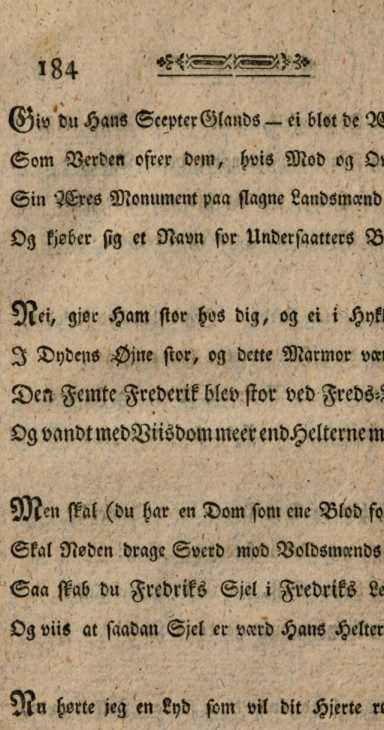 184
Giv du Hans Scepter Glands — ei blot de
Som Verden ofrer dem, hvis Mod og
Sin Æres Monument paa slagne Landsmænd
Og kjøber sig et Navn for Undersaatters
Nei, gjør Ham stor hos dig, og ei i
I Dydens Øjne stor, og dette Marmor
Den Femte Frederik blev stor ved Freds-
Og vandt med Viisdom meer end Helterne
Men skal (du har en Dom som ene Blod
Skal Nøden drage Sverd mod Voldsmænds
Saa skab du Fredriks Sjel i Fredriks
Og viis at saadan Sjel er værd Hans
Nu hørte jeg en Lyd som vil dit Hjerte